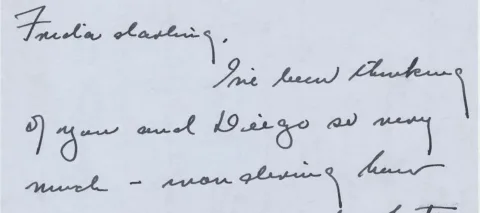 Frida darling.
I've been thinking
of you and Diego so very
much - wondering how